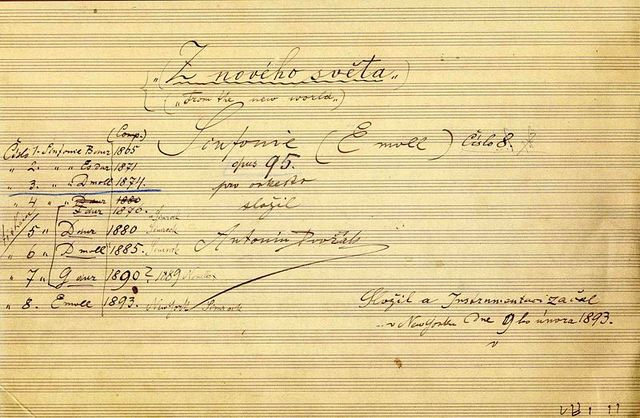 ("Z nového světa„)
("From the new world„)
Sinfonie (E moll) Číslo 8.
opus 95.
pro orkestr
složil
Antonín Dvořák
(Comp.)
Číslo 1. Sinfonie B dur 1865
„ 2. „ Es dur 1871
„ 3. „ D moll 1874.
„ 4 „ D dur 1880
F dur 1870. Simrock
5 „ D dur 1880 Simrock
„ 6 „ D moll 1885. Simrock
„ 7 „ G dur 1890? 1889 Novello
„ 8. E moll 1893. New York Simrock
Složil a Instrumentaci začal
v New Yorku Dne 9ho února 1893.